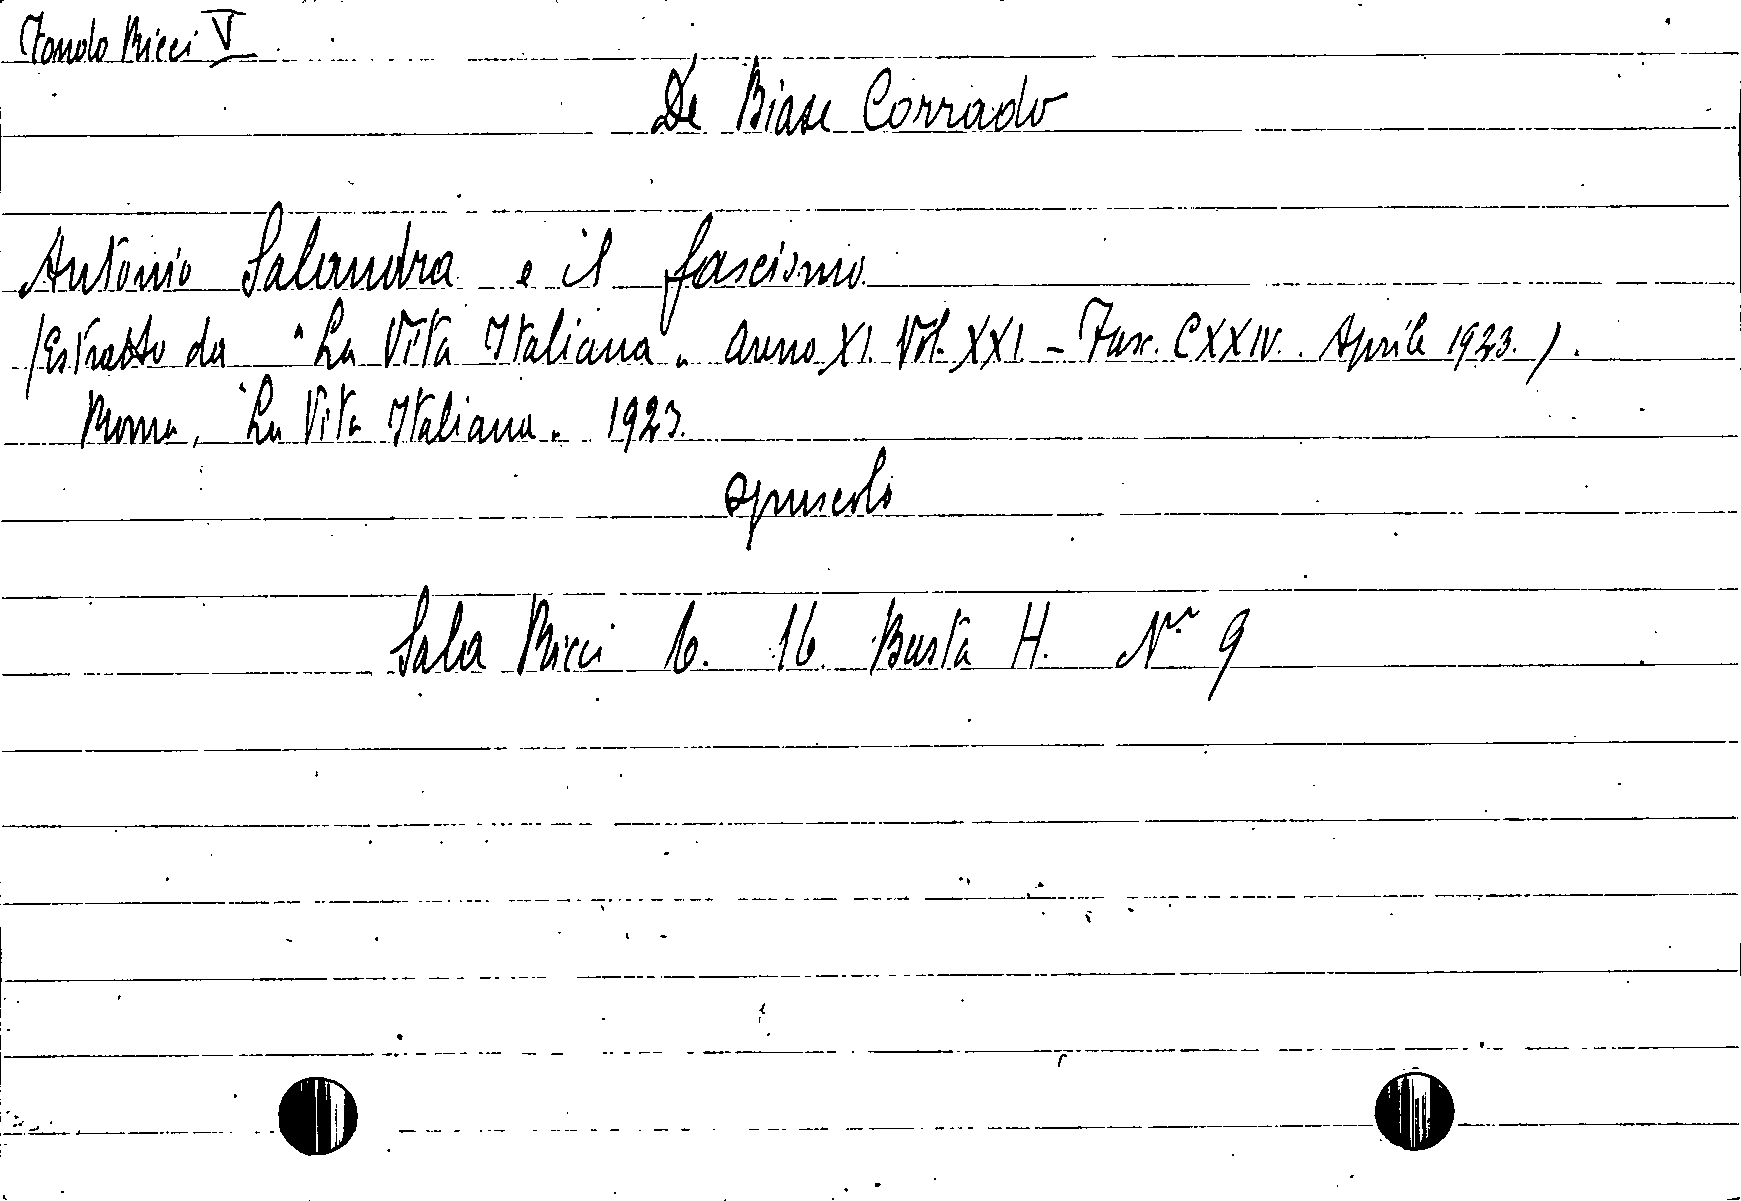 Fondo Ricci V
De Biase Corrado
Antonio Salandra e il fascismo
(Estratto da "La Vita Italiana" anno XI. Vol. XXI - Fasc. CXXIV. Aprile 1923.).
Roma, "La Vita Italiana" 1923.
opuscolo
Sala Ricci 6. 16. Busta H. Nr. 9